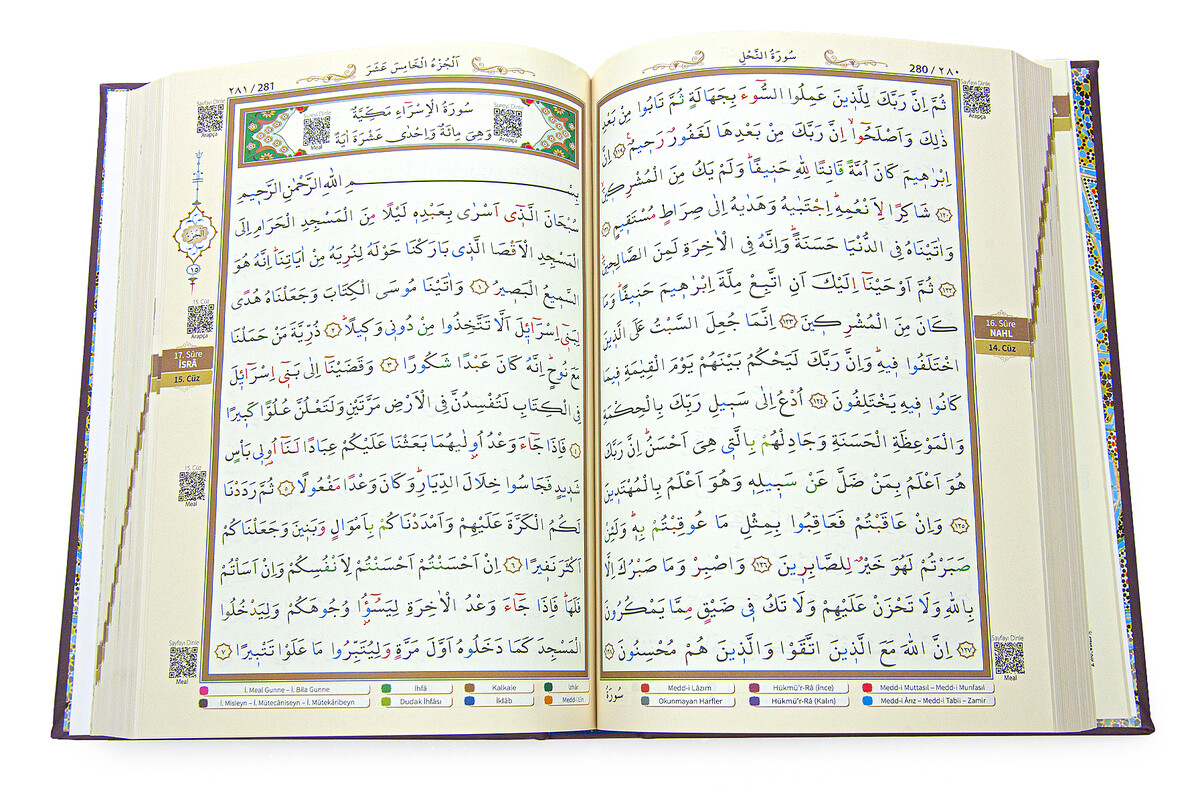 سُورَةُ النَّحْلِ
280 / ٢٨٠
Sayfayı Dinle
Arapça
ثُمَّ اِنَّ رَبَّكَ لِلَّذ۪ينَ عَمِلُوا السُّٓوءَ بِجَهَالَةٍ ثُمَّ تَابُوا مِنْ بَعْدِ
ذٰلِكَ وَاَصْلَحُٓوا اِنَّ رَبَّكَ مِنْ بَعْدِهَا لَغَفُورٌ رَح۪يمٌ۟ ﴿١١٩﴾ اِنَّ
اِبْرٰه۪يمَ كَانَ اُمَّةً قَانِتًا لِلّٰهِ حَن۪يفًاۜ وَلَمْ يَكُ مِنَ الْمُشْرِك۪ينَۙ
﴿١٢٠﴾ شَاكِرًا لِاَنْعُمِهِۜ اِجْتَبٰيهُ وَهَدٰيهُ اِلٰى صِرَاطٍ مُسْتَق۪يمٍ ﴿١٢١﴾
وَاٰتَيْنَاهُ فِي الدُّنْيَا حَسَنَةًۜ وَاِنَّهُ فِي الْاٰخِرَةِ لَمِنَ الصَّالِح۪ينَۜ
﴿١٢٢﴾ ثُمَّ اَوْحَيْنَٓا اِلَيْكَ اَنِ اتَّبِعْ مِلَّةَ اِبْرٰه۪يمَ حَن۪يفًاۜ وَمَا
كَانَ مِنَ الْمُشْرِك۪ينَ ﴿١٢٣﴾ اِنَّمَا جُعِلَ السَّبْتُ عَلَى الَّذ۪ينَ
اخْتَلَفُوا ف۪يهِۜ وَاِنَّ رَبَّكَ لَيَحْكُمُ بَيْنَهُمْ يَوْمَ الْقِيٰمَةِ ف۪يمَا
كَانُوا ف۪يهِ يَخْتَلِفُونَ ﴿١٢٤﴾ اُدْعُ اِلٰى سَب۪يلِ رَبِّكَ بِالْحِكْمَةِ
وَالْمَوْعِظَةِ الْحَسَنَةِ وَجَادِلْهُمْ بِالَّت۪ي هِيَ اَحْسَنُۜ اِنَّ رَبَّكَ
هُوَ اَعْلَمُ بِمَنْ ضَلَّ عَنْ سَب۪يلِه۪ وَهُوَ اَعْلَمُ بِالْمُهْتَد۪ينَ
﴿١٢٥﴾ وَاِنْ عَاقَبْتُمْ فَعَاقِبُوا بِمِثْلِ مَا عُوقِبْتُمْ بِه۪ۜ وَلَئِنْ
صَبَرْتُمْ لَهُوَ خَيْرٌ لِلصَّابِر۪ينَ ﴿١٢٦﴾ وَاصْبِرْ وَمَا صَبْرُكَ اِلَّا
بِاللّٰهِ وَلَا تَحْزَنْ عَلَيْهِمْ وَلَا تَكُ ف۪ي ضَيْقٍ مِمَّا يَمْكُرُونَ
﴿١٢٧﴾ اِنَّ اللّٰهَ مَعَ الَّذ۪ينَ اتَّقَوْا وَالَّذ۪ينَ هُمْ مُحْسِنُونَ ﴿١٢٨﴾
16. Sûre
NAHL
14. Cüz
Sayfayı Dinle
Meal
سُورَةُ
Medd-i Lâzım
Hükmü'r-Râ (İnce)
Medd-i Muttasıl – Medd-i Munfasıl
Okunmayan Harfler
Hükmü'r-Râ (Kalın)
Medd-i Ârız – Medd-i Tabii – Zamir
اَلْجُزْءُ الْخَامِسَ عَشَرَ
٢٨١ / 281
Sayfayı Dinle
Arapça
سُورَةُ الْاِسْرَٓاءِ مَكِّيَّةٌ
وَهِيَ مِائَةٌ وَاِحْدٰى عَشْرَةَ اٰيَةً
Sureyi Dinle
Meal
Sureyi Dinle
Arapça
بِسْمِ اللّٰهِ الرَّحْمٰنِ الرَّح۪يمِ
سُبْحَانَ الَّذ۪ٓي اَسْرٰى بِعَبْدِه۪ لَيْلًا مِنَ الْمَسْجِدِ الْحَرَامِ اِلَى
الْمَسْجِدِ الْاَقْصَا الَّذ۪ي بَارَكْنَا حَوْلَهُ لِنُرِيَهُ مِنْ اٰيَاتِنَاۜ اِنَّهُ هُوَ
السَّم۪يعُ الْبَص۪يرُ ﴿١﴾ وَاٰتَيْنَا مُوسَى الْكِتَابَ وَجَعَلْنَاهُ هُدًى
لِبَن۪ٓي اِسْرَٓائ۪لَ اَلَّا تَتَّخِذُوا مِنْ دُون۪ي وَك۪يلًاۜ ﴿٢﴾ ذُرِّيَّةَ مَنْ حَمَلْنَا
مَعَ نُوحٍۜ اِنَّهُ كَانَ عَبْدًا شَكُورًا ﴿٣﴾ وَقَضَيْنَٓا اِلٰى بَن۪ٓي اِسْرَٓائ۪لَ
فِي الْكِتَابِ لَتُفْسِدُنَّ فِي الْاَرْضِ مَرَّتَيْنِ وَلَتَعْلُنَّ عُلُوًّا كَب۪يرًا
﴿٤﴾ فَاِذَا جَٓاءَ وَعْدُ اُو۫لٰيهُمَا بَعَثْنَا عَلَيْكُمْ عِبَادًا لَنَٓا اُو۬ل۪ي بَأْسٍ
شَد۪يدٍ فَجَاسُوا خِلَالَ الدِّيَارِۜ وَكَانَ وَعْدًا مَفْعُولًا ﴿٥﴾ ثُمَّ رَدَدْنَا
لَكُمُ الْكَرَّةَ عَلَيْهِمْ وَاَمْدَدْنَاكُمْ بِاَمْوَالٍ وَبَن۪ينَ وَجَعَلْنَاكُمْ
اَكْثَرَ نَف۪يرًا ﴿٦﴾ اِنْ اَحْسَنْتُمْ اَحْسَنْتُمْ لِاَنْفُسِكُمْ وَاِنْ اَسَأْتُمْ
فَلَهَاۜ فَاِذَا جَٓاءَ وَعْدُ الْاٰخِرَةِ لِيَسُٓؤُ۫ا وُجُوهَكُمْ وَلِيَدْخُلُوا
الْمَسْجِدَ كَمَا دَخَلُوهُ اَوَّلَ مَرَّةٍ وَلِيُتَبِّرُوا مَا عَلَوْا تَتْب۪يرًا ﴿٧﴾
١٥
15. Cüz
Arapça
17. Sûre
İSRÂ
15. Cüz
15. Cüz
Meal
Sayfayı Dinle
Meal
İ. Meal Gunne – İ. Bila Gunne
İhfâ
Kalkale
İzhâr
İ. Misleyn – İ. Mütecâniseyn – İ. Mütekâribeyn
Dudak İhfâsı
İklâb
Medd-i Lîn